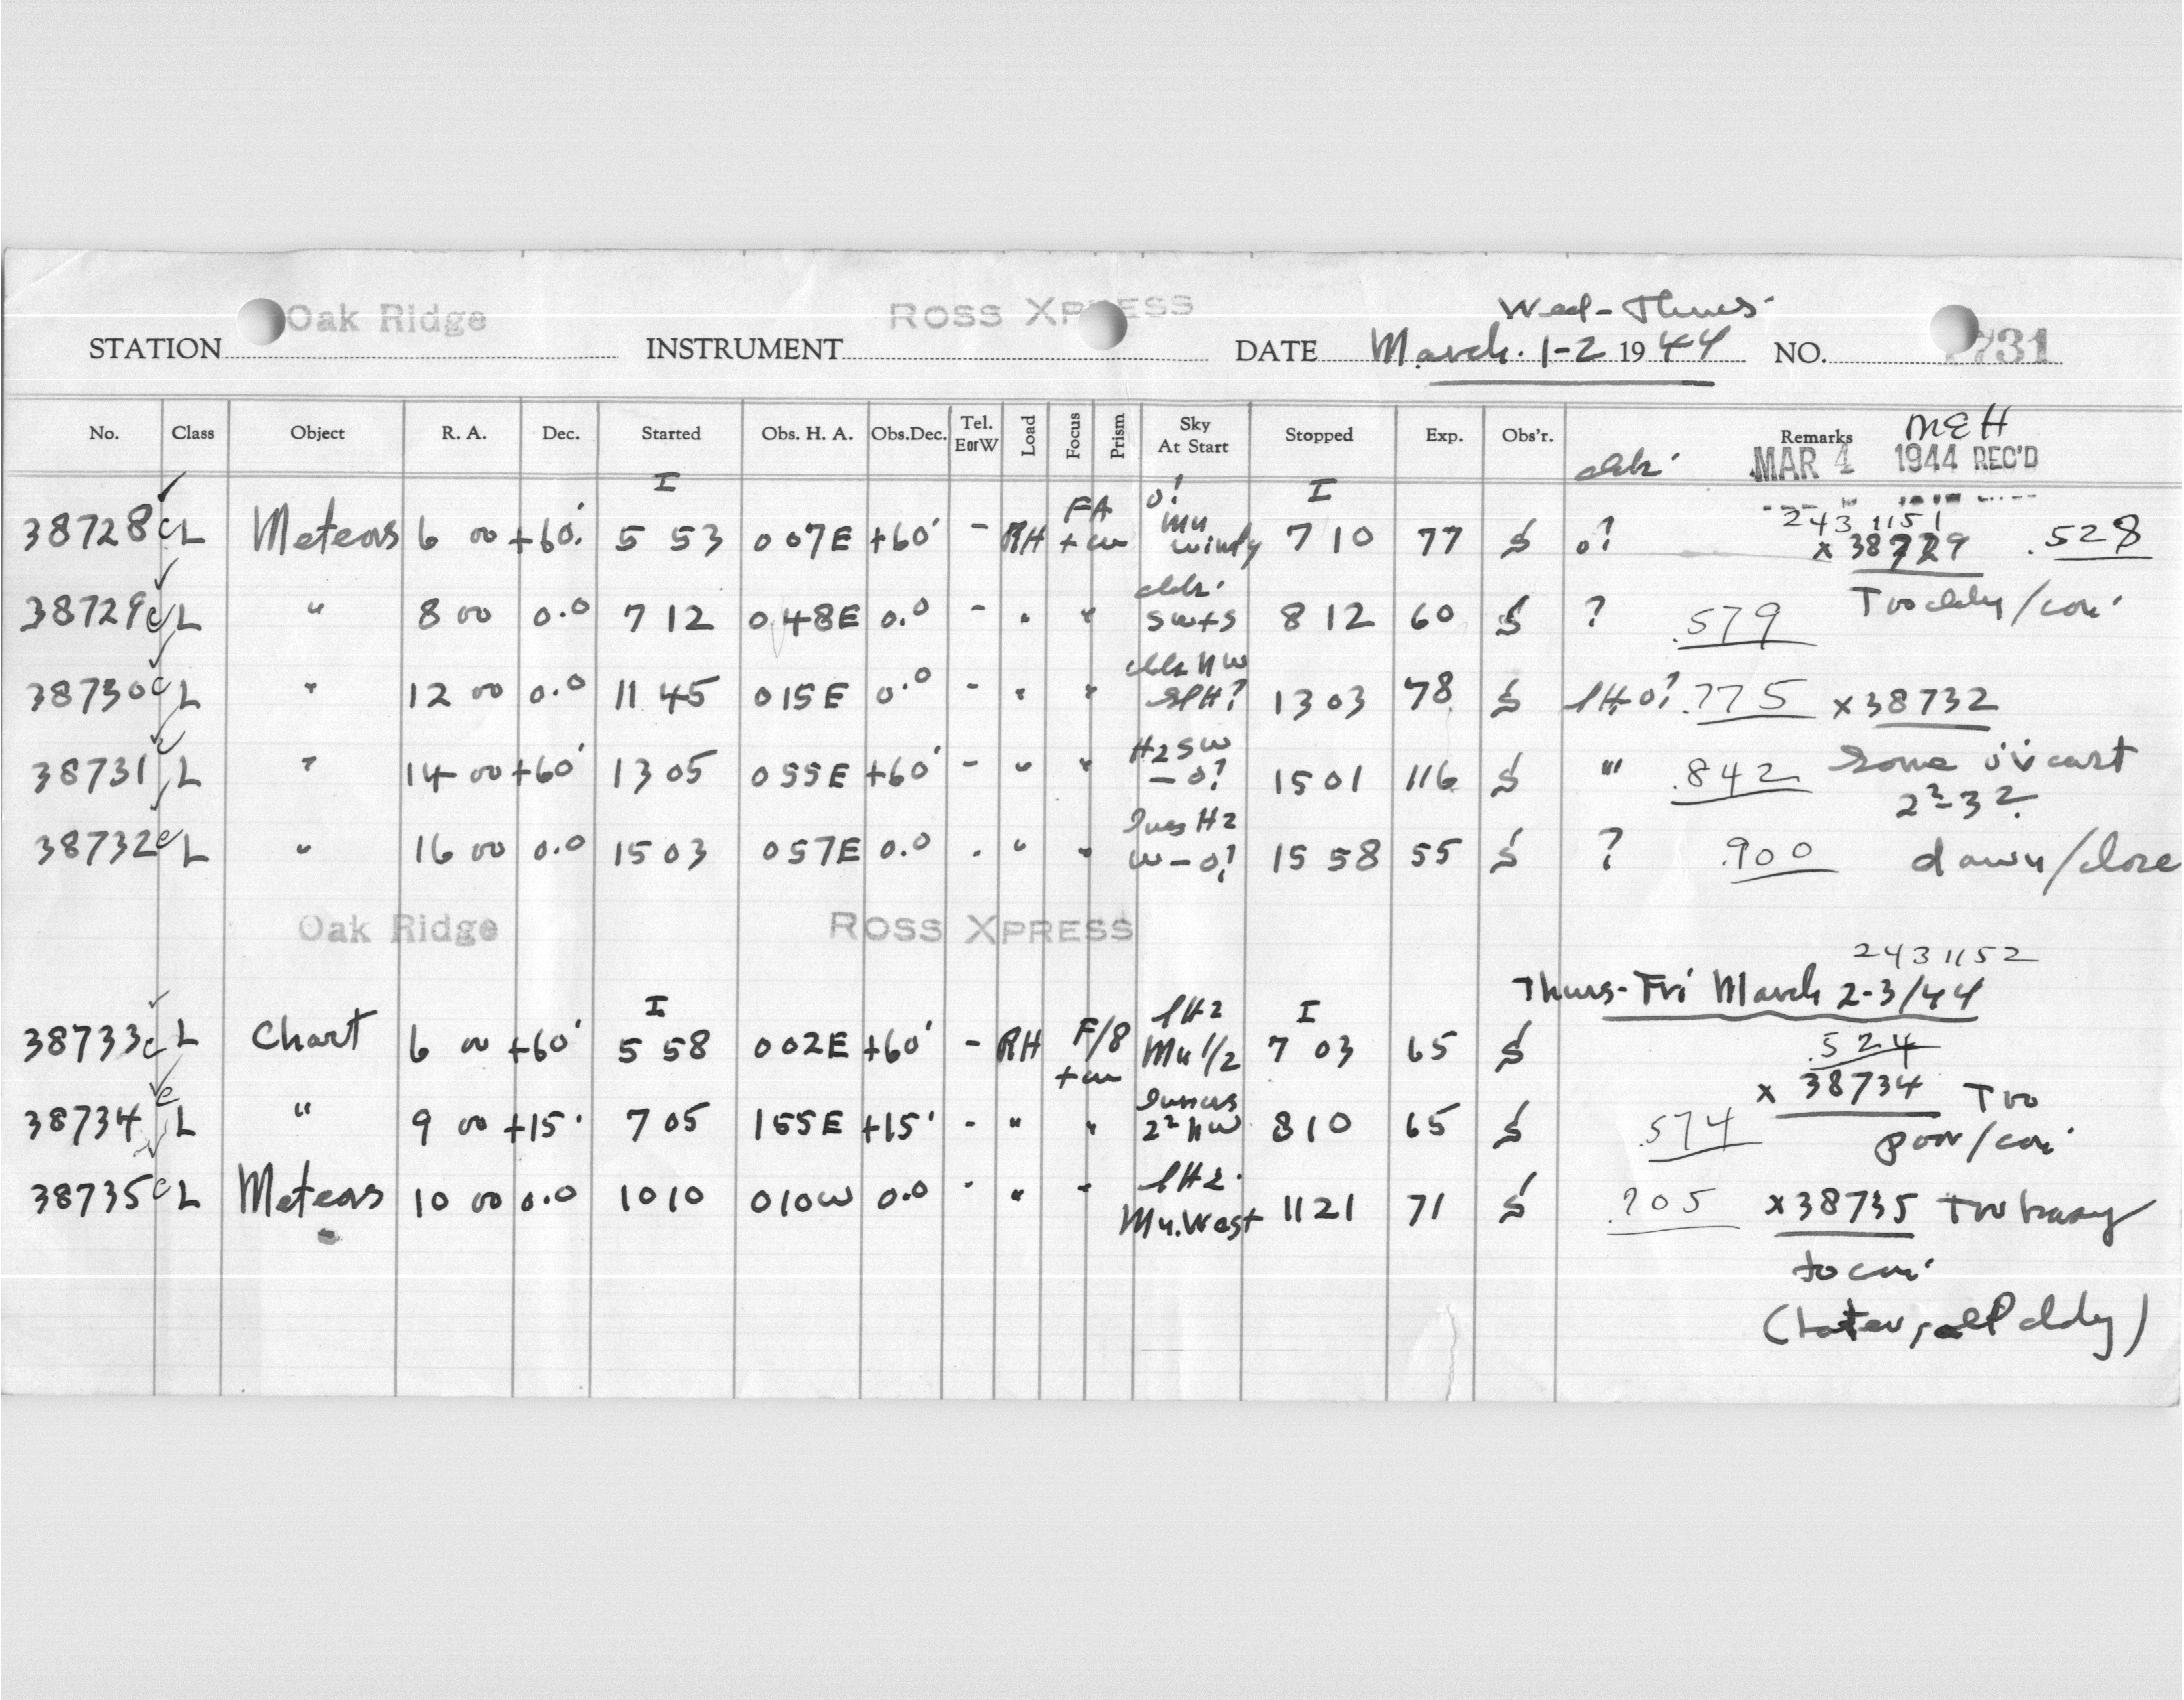 Oak Ridge ROSS XPRESS Wed-Thurs.
STATION INSTRUMENT DATE March. 1-2 1944 NO. 731
No. Class Object R. A. Dec. Started Obs. H. A. Obs.Dec. Tel. EorW Load Focus Prism Sky At Start Stopped Exp. Obs'r. Remarks MEH
MAR 4 1944 REC'D
I I
2431151
38728 c L Meteors 6 00 +60. 5 53 0 07E +60 - RH FA 0! windy 7 10 77 S 0? x 38729 .528
38729 c L " 8 00 0.0 7 12 0 48E 0.0 - " " SW+S 8 12 60 S ? .579 Too cldy/
38730 c L " 12 00 0.0 11 45 0 15E 0.0 - " " NW 13 03 78 S 0? .775 x 38732
38731 c L " 14 00 +60 13 05 0 55E +60 - " " H2 SW -0? 15 01 116 S " .842 Some
2²-3².
38732 c L " 16 00 0.0 15 03 0 57E 0.0 - " " H2 W-0? 15 58 55 S ? .900 dawn/close
Oak Ridge ROSS XPRESS
2431152
Thurs-Fri March 2-3/44
I I
38733 c L Chart 6 00 +60 5 58 0 02E +60 - RH F/8 1/2 7 03 65 S .524
38734 c L " 9 00 +15 7 05 1 55E +15 - " " 2² NW 8 10 65 S .574 x 38734 Too
poor/
38735 c L Meteors 10 00 0.0 10 10 0 10W 0.0 - " " West 11 21 71 S .705 x 38735 Too hazy
to
(Later, all cldy)